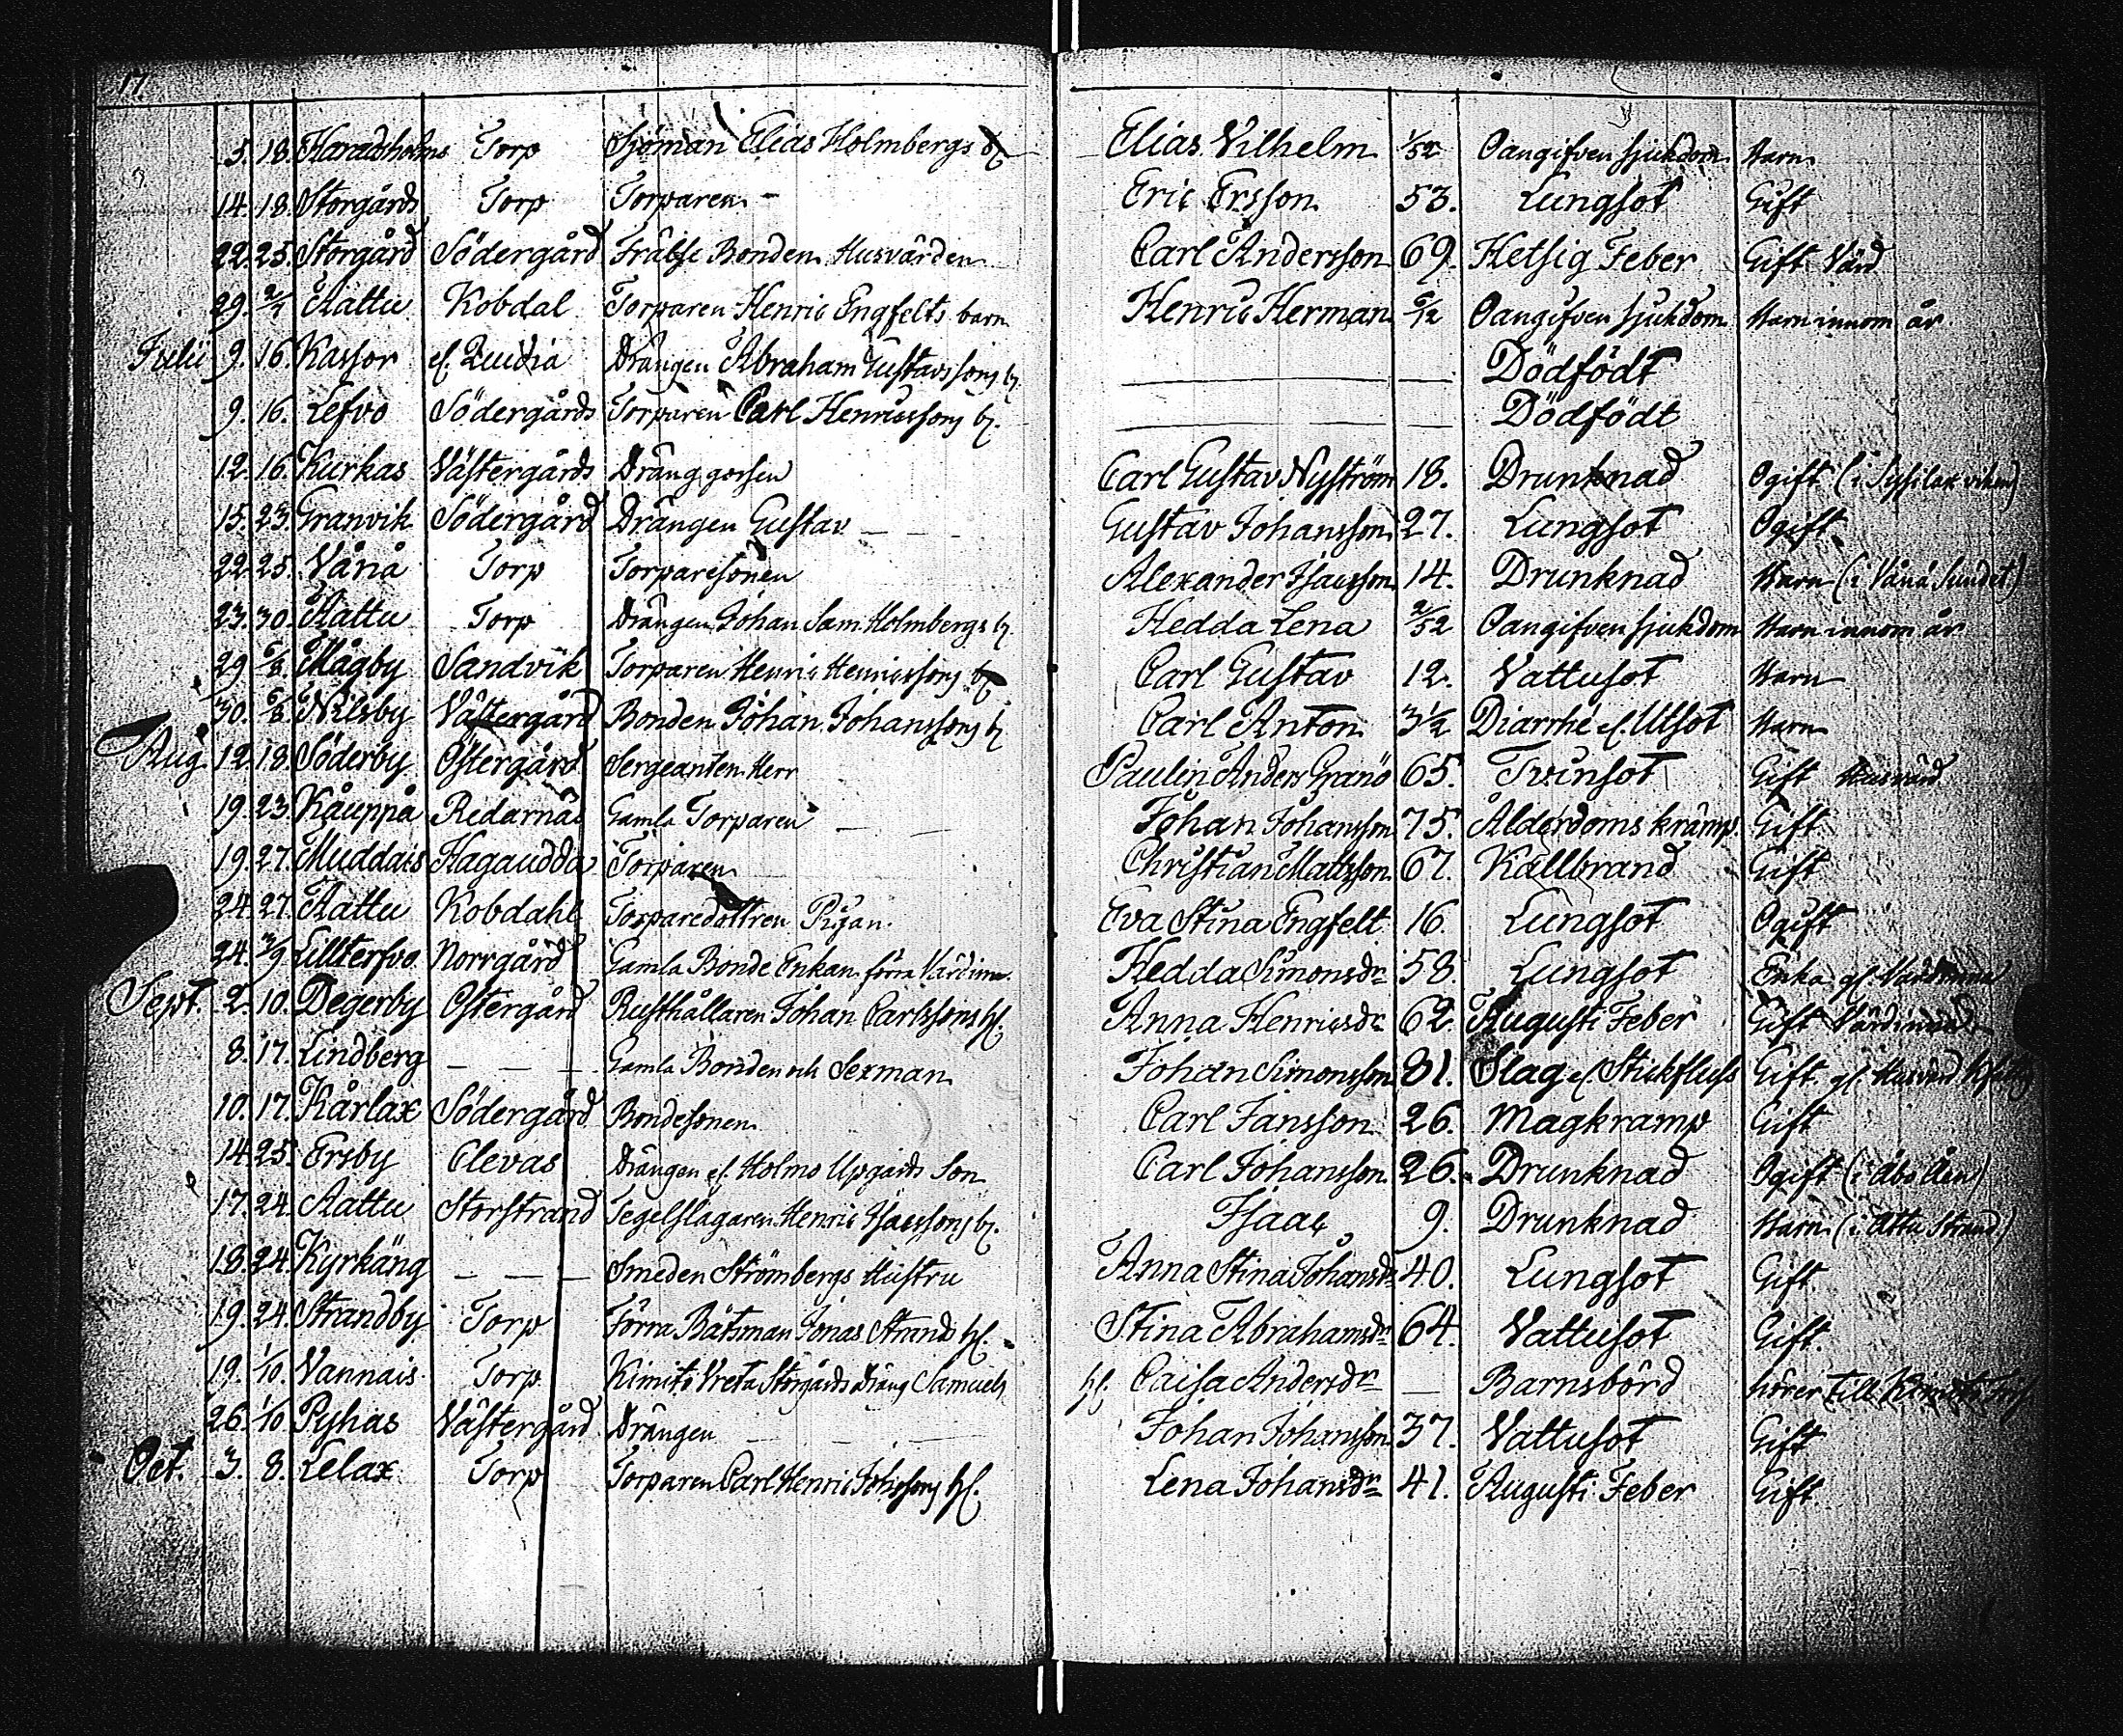 17
5. 18. Haradsholms Torp Sjöman Elias Holmbergs bn Elias Vilhelm 1/52 Oangifven sjukdom Barn
14. 18. Storgårds Torp Torparen – Eric Ersson 53. Lungsot Gift
22. 25. Storgård Södergård Frälse Bonden Husvärden Carl Andersson 69. Hetsig Feber Gift Värd
29. 2/7 Aattu Kobdal Torparen Henric Engfelts barn Henric Herman 6/12 Oangifven sjukdom Barn innom år
Julii 9. 16. Kassor Drängen Abraham Gustavssons b. — — Dödfödt
9. 16. Lefvo Södergårds Torparen Carl Henricssons b. — — Dödfödt
12. 16. Kurkas Västergårds Dräng gossen Carl Gustav Nyström 18. Drunknad Ogift
15. 23. Granvik Södergård Drängen Gustav — Gustav Johansson 27. Lungsot Ogift
22. 25. Vånå Torp Torparesonen Alexander Isacsson 14. Drunknad Barn (i Vånå Sundet)
23. 30. Aattu Torp Drängen Johan Sam. Holmbergs b. Hedda Lena 2/52 Oangifven sjukdom Barn innom år
29 6/8. Mågby Sandvik Torparen Henric Henricssons bn Carl Gustav 12. Vattusot Barn
30. 6/8. Nilsby Västergård Bonden Johan Johanssons b Carl Anton 3½ Diarrhé el. Utsot Barn
Aug. 12. 18. Söderby Östergård Sergeanten Herr Paulin Anders Granö 65. Tvinsot Gift Husvärd
19. 23. Kåuppa Redarnäs Gamla Torparen — Johan Johansson 75. Ålderdoms krämp. Gift
19. 27. Muddais Hagaudda Torparen Christian Mattsson 67. Kallbrand Gift
24. 27. Aattu Kobdahl Torparedottren Pigan. Eva Stina Engfelt 16. Lungsot Ogift
24. 3/9 Lillterfvo Norrgård Gamla Bonde Enkan förra Värdinn. Hedda Simonsdr 58. Lungsot Enka gl. Värdinna
Sept. 2. 10. Degerby Östergård Rusthållaren Johan Carlssons h. Anna Henricsdr 62. Augusti Feber Gift Värdinna
8. 17. Lindberg — — — Gamla Bonden och Sexman Johan Simonsson 81. Slag el. Stickfluss Gift gl. Husvärd
10. 17. Kårlax Södergård Bondesonen Carl Jansson 26. Magkramp Gift
14. 25. Ersby Clevas Drängen el. Holmo Upgårds Son Carl Johansson 26. Drunknad Ogift (i Åbo Åen)
17. 24. Aattu Storstrand Tegelslagaren Henric Isacssons b. Isaac 9. Drunknad Barn (i Attu Strand)
18. 24. Kyrkäng — — — Smeden Strömbergs Hustru Anna Stina Johansdr 40. Lungsot Gift
19. 24. Strandby Torp Förra Båtsman Jonas Strands h. Stina Abrahamsdr 64. Vattusot Gift.
19. 1/10. Vannais Torp Kimito Vreta Storgårds dräng Samuels h. Caisa Andersdr — Barnsbörd hörer till Kimito
26. 1/10 Pyhas Västergård Drängen — Johan Johansson 37. Vattusot Gift
Oct. 3. 8. Lelax Torp Torparen Carl Henric Johssons h. Lena Johansdr 41. Augusti Feber Gift